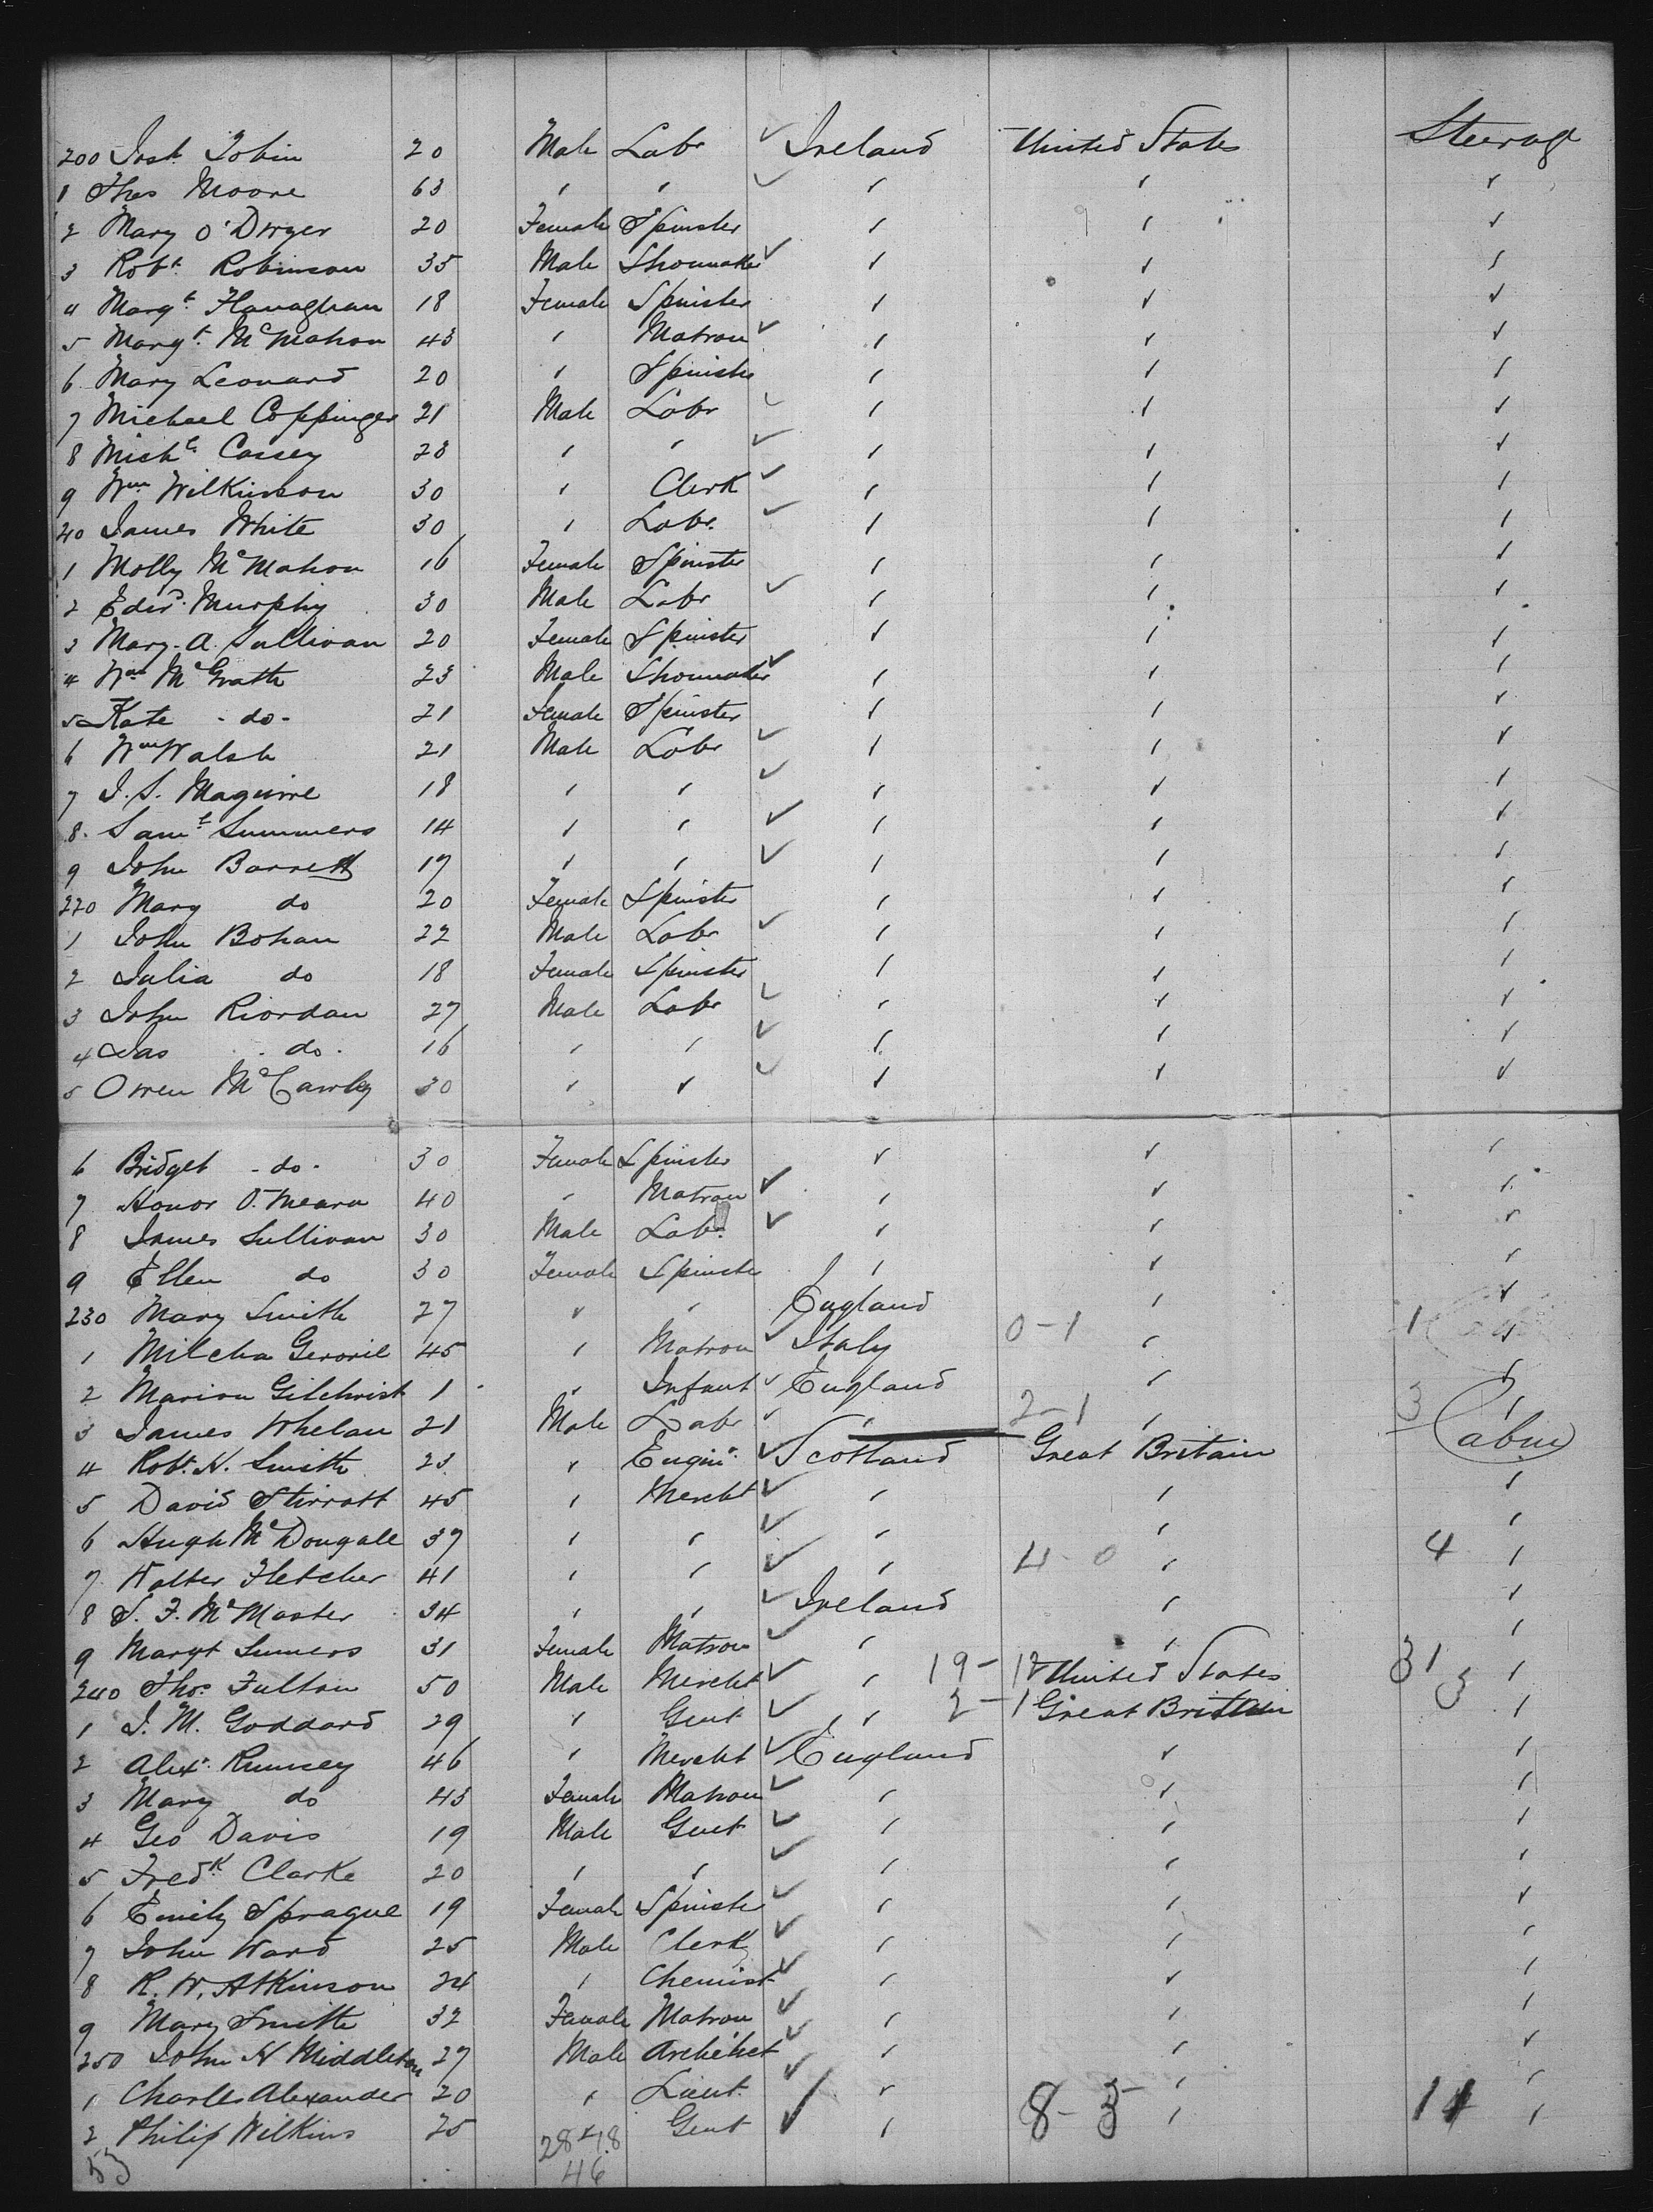 200 Josh Tobin 20 Male Labr ✓ Ireland United States Steerage
1 Thos Moore 63 " " ✓ " " "
2 Mary O'Dwyer 20 Female Spinster " " "
3 Robt. Robinson 35 Male Shoemaker ✓ " " "
4 Margt. Flanaghan 18 Female Spinster " " "
5 Margt. McMahon 43 " Matron ✓ " " "
6 Mary Leonard 20 " Spinster " " "
7 Michael Coppinger 21 Male Labr ✓ " " "
8 Michl. Cassey 28 " " ✓ " " "
9 Wm Wilkinson 30 " Clerk ✓ " " "
210 James White 30 " Labr. ✓ " " "
1 Molly McMahon 16 Female Spinster " " "
2 Edwd. Murphy 30 Male Labr ✓ " " "
3 Mary. A. Sullivan 20 Female Spinster " " "
4 Wm McGrath 23 Male Shoemaker ✓ " " "
5 Kate - do - 21 Female Spinster " " "
6 Wm Walsh 21 Male Labr ✓ " " "
7 J. S. Maguire 18 " " ✓ " " "
8. Saml. Summers 14 " " ✓ " " "
9 John Barrett 17 " " ✓ " " "
220 Mary do 20 Female Spinster " " "
1 John Bohan 22 Male Labr ✓ " " "
2 Julia do 18 Female Spinster " " "
3 John Riordan 27 Male Labr ✓ " " "
4 Jas - do. 16 " " ✓ " " "
5 Owen McCawley 30 " " ✓ " " "
6 Bridget - do - 30 Female Spinster " " "
7 Honor O'Meara 40 " Matron ✓ " " "
8 James Sullivan 30 Male Labr. ✓ " " "
9 Ellen do 30 Female Spinster " " "
230 Mary Smith 27 " " England " "
1 Milcha 45 " Matron ✓ Italy 0-1 " 1 "
2 Marion Gilchrist 1 " Infant ✓ England " "
3 James Whelan 21 Male Labr ✓ " 2-1 " 3 "
4 Robt. H. Smith 23 " Engin. ✓ Scotland Great Britain Cabin
5 David Stirratt 45 " Mercht ✓ " " "
6 Hugh McDougall 37 " " ✓ " " "
7. Walter Fletcher 41 " " ✓ " 4-0 " 4 "
8 S. F. McMaster 34 " " ✓ Ireland " "
9 Margt Sumers 31 Female Matron ✓ " " "
240 Thos. Fulton 50 Male Mercht ✓ " 19-12 United States 31 "
1 J. M. Goddard 29 " Gent ✓ " 2-1 Great Britain 3 "
2 Alexr. Rumsey 46 " Mercht ✓ England " "
3 Mary do 43 Female Matron ✓ " " "
4 Geo Davis 19 Male Gent ✓ " " "
5 Fredk. Clarke 20 " " ✓ " " "
6 Emily Sprague 19 Female Spinster ✓ " " "
7 John Ward 25 Male Clerk ✓ " " "
8 R. W. Atkinson 24 " Chemist ✓ " " "
9 Mary Smith 32 Female Matron ✓ " " "
250 John H Middleton 27 Male Architect ✓ " " "
1 Charles Alexander 20 " Lieut. ✓ " " "
2 Philip Wilkins 25 " Gent ✓ " 8-3 " 11 "
53 28+18
46